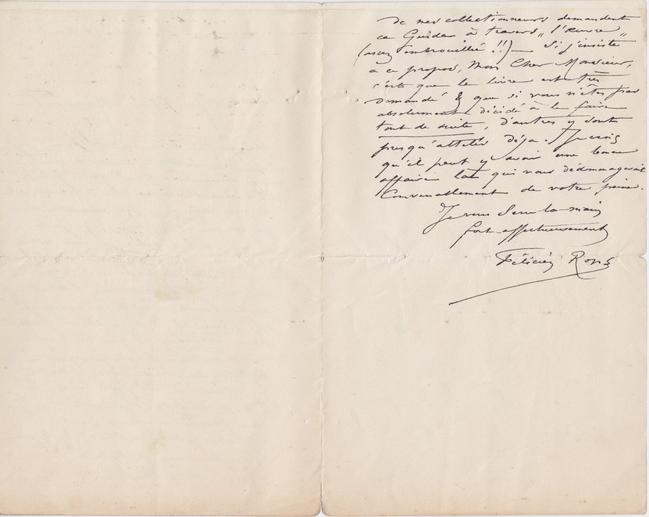 de mes collectionneurs demandent
ce Guide à travers „l'œuvre„
(assez embrouillée !!) — Si j'insiste
à ce propos, Mon Cher Monsieur,
c'est que le livre est très
demandé & que si vous n'êtes pas
absolument décidé à le faire
tout de suite, d'autres y sont
presqu'attelés déja. Je crois
qu'il peut y avoir une bonne
affaire là qui vous dédommagerait
Convenablement de votre peine.
Je vous serre la main
fort affectueusement
Félicien Rops